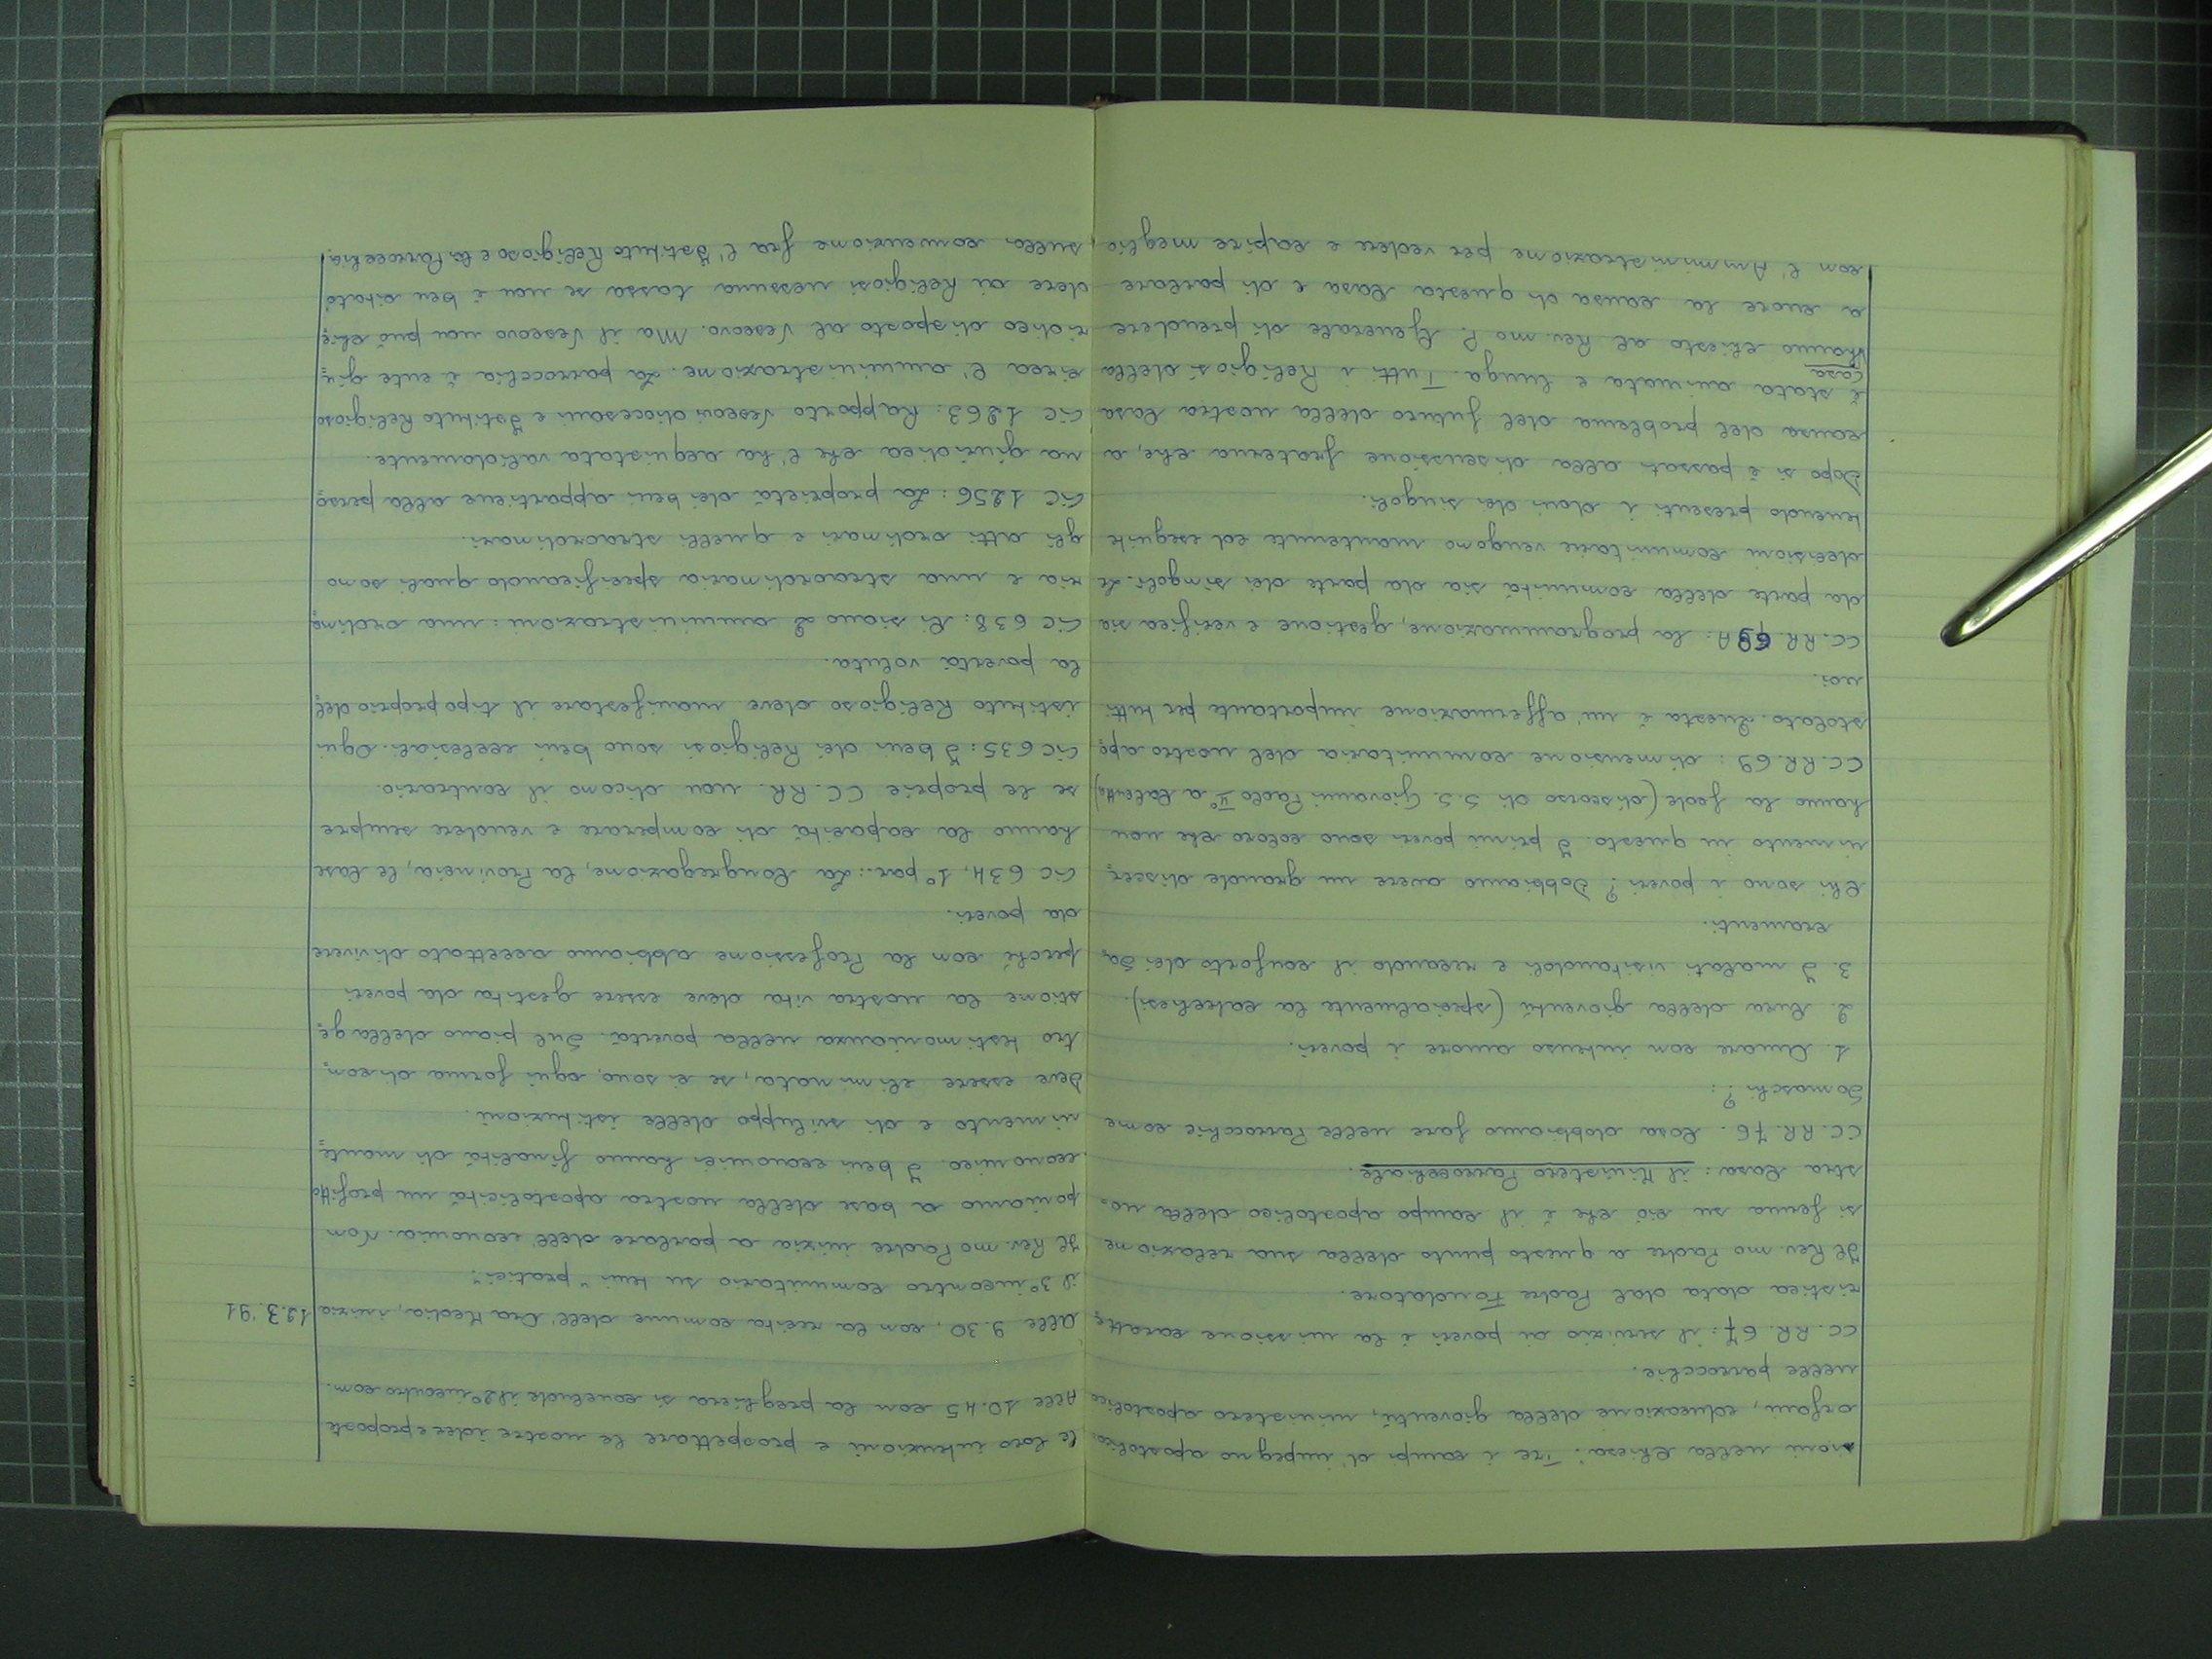 sioni nella Chiesa: Tre i campi d'impegno apostolico:
orfani, educazione della gioventù, ministero apostolico
nelle parrocchie.
CC. RR. 67: il servizio ai poveri è la missione caratte=
ristica data dal Padre Fondatore.
Il Rev.mo Padre a questo punto della sua relazione
si ferma su ciò che è il campo apostolico della no=
stra Casa: il Ministero Parrocchiale.
CC. RR. 76. Cosa dobbiamo fare nelle Parrocchie come
Somaschi?:
1. Amare con intenso amore i poveri.
2. Cura della gioventù (specialmente la catechesi).
3. I malati visitandoli e recando il conforto dei Sa=
cramenti.
Chi sono i poveri? Dobbiamo avere un grande discer=
nimento in questo. I primi poveri sono coloro che non
hanno la fede (discorso di S.S. Giovanni Paolo II° a Calcutta)
CC. RR. 69: dimensione comunitaria del nostro apo=
stolato. Questa è un'affermazione importante per tutti
noi.
CC. RR. 69A: la programmazione, gestione e verifica sia
da parte della comunità sia da parte dei singoli. Le
decisioni comunitarie vengono mantenute ed eseguite
tenendo presenti i doni dei singoli.
Dopo si è passati alla discussione fraterna che, a
causa del problema del futuro della nostra Casa
è stata animata e lunga. Tutti i Religiosi della
Casa
hanno chiesto al Rev.mo P. Generale di prendere
a cuore la causa di questa Casa e di parlare
con l'Amministrazione per vedere e capire meglio
le loro intenzioni e prospettare le nostre idee e proposte
Alle 10.45 con la preghiera si conclude il 2° incontro com.
Alle 9.30, con la recita comune dell'Ora Media, inizia 12.3.'91
il 3° incontro comunitario su temi "pratici".
Il Rev.mo Padre inizia a parlare dell'economia. Non
poniamo a base della nostra apostolicità un profitto
economico. I beni economici hanno finalità di mante=
nimento e di sviluppo delle istituzioni.
Deve essere eliminata, se ci sono, ogni forma di con=
tro testimonianza nella povertà. Sul piano della ge=
stione la nostra vita deve essere gestita da poveri
perché con la Professione abbiamo accettato di vivere
da poveri.
CIC 634, 1° par.: La Congregazione, la Provincia, le Case
hanno la capacità di comperare e vendere sempre
se le proprie CC. RR. non dicono il contrario.
CIC 635: I beni dei Religiosi sono beni ecclesiali. Ogni
istituto Religioso deve manifestare il tipo proprio del=
la povertà voluta.
CIC 638: Ci siano 2 amministrazioni: una ordina=
ria e una straordinaria specificando quali sono
gli atti ordinari e quelli straordinari.
CIC 1256: La proprietà dei beni appartiene alla perso=
na giuridica che l'ha acquistata validamente.
CIC 1263: Rapporto Vescovi diocesani e Istituto Religioso
circa l'amministrazione. La parrocchia è ente giu=
ridico disposto al Vescovo. Ma il Vescovo non può chie=
dere ai Religiosi nessuna tassa se non è ben citato
sulla convenzione fra l'Istituto Religioso e la Parrocchia.